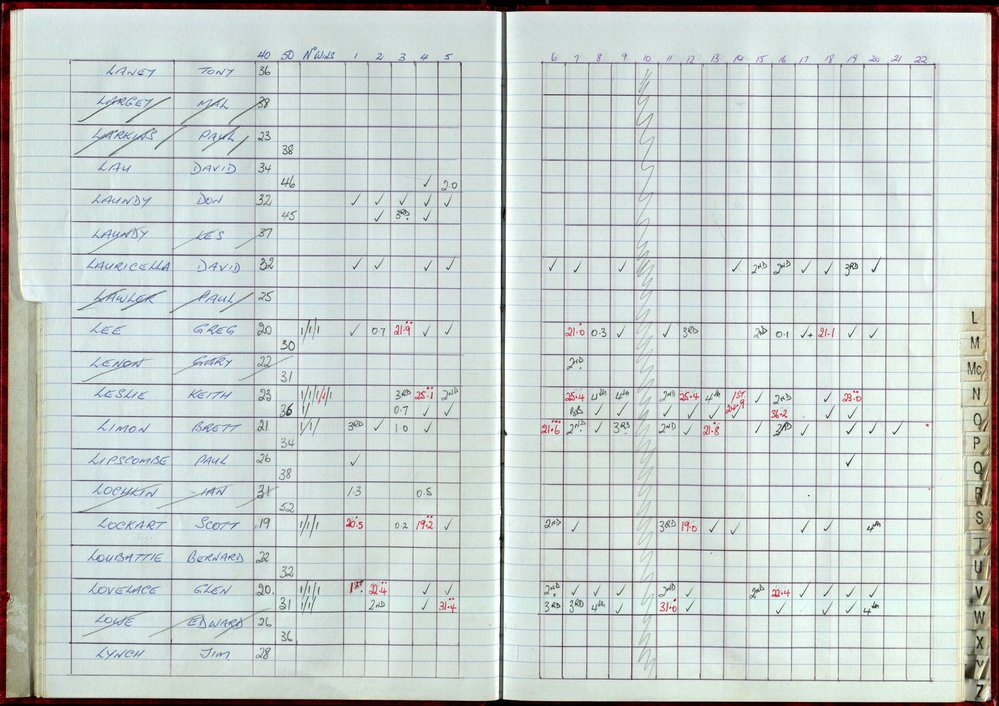 40 50 Nº WINS 1 2 3 4 5 6 7 8 9 10 11 12 13 14 15 16 17 18 19 20 21 22
LANEY TONY 36
LARGEY MAL 38
LARKINS PAUL 23
38
LAU DAVID 34
46 ✓ 2.0
LAUNDY DON 32 ✓ ✓ ✓ ✓ ✓
45 ✓ 3RD ✓
LAUNDY LES 37
LAURICELLA DAVID 32 ✓ ✓ ✓ ✓ ✓ ✓ ✓ ✓ 2ND 2ND ✓ ✓ 3RD ✓
LAWLER PAUL 25
LEE GREG 20 1/1/1 ✓ 0.7 21.9 ✓ ✓ 21.0 0.3 ✓ ✓ 3RD 2ND 0.1 ✓+ 21.1 ✓ ✓
30
LENON GARY 22 2ND
31
LESLIE KEITH 23 1/1/1/1/1 3RD 25.1 2ND 25.4 4th 4th 2ND 25.4 4th 1ST 24.9 ✓ 2ND ✓ 23.0
36 1/ 0.7 ✓ ✓ ✓ ✓ ✓ ✓ ✓ ✓ 36.2 ✓ ✓
LIMON BRETT 21 1/1/ 3RD ✓ 1.0 ✓ 21.6 2ND ✓ 3RD 2ND ✓ 21.8 ✓ ✓ ✓ ✓ ✓
34
LIPSCOMBE PAUL 26 ✓ ✓
38
LOCHKIN IAN 31 1.3 0.5
52
LOCKART SCOTT 19 1/1/1 20.5 0.2 19.2 ✓ 2ND ✓ 3RD 19.0 ✓ ✓ ✓ ✓ 4th
LOUBATTIE BERNARD 22
32
LOVELACE GLEN 20 1/1/1 1ST 22.4 ✓ ✓ 2ND ✓ ✓ ✓ 2ND ✓ 2ND 22.4 ✓ ✓ ✓ ✓
31 1/1/ 2ND ✓ 31.4 3RD 3RD 4th ✓ 31.0 ✓ ✓ ✓ ✓ 4th
LOWE EDWARD 26
36
LYNCH JIM 28
L
M
Mc
N
O
P
Q
R
S
T
U
V
W
X
Y
Z